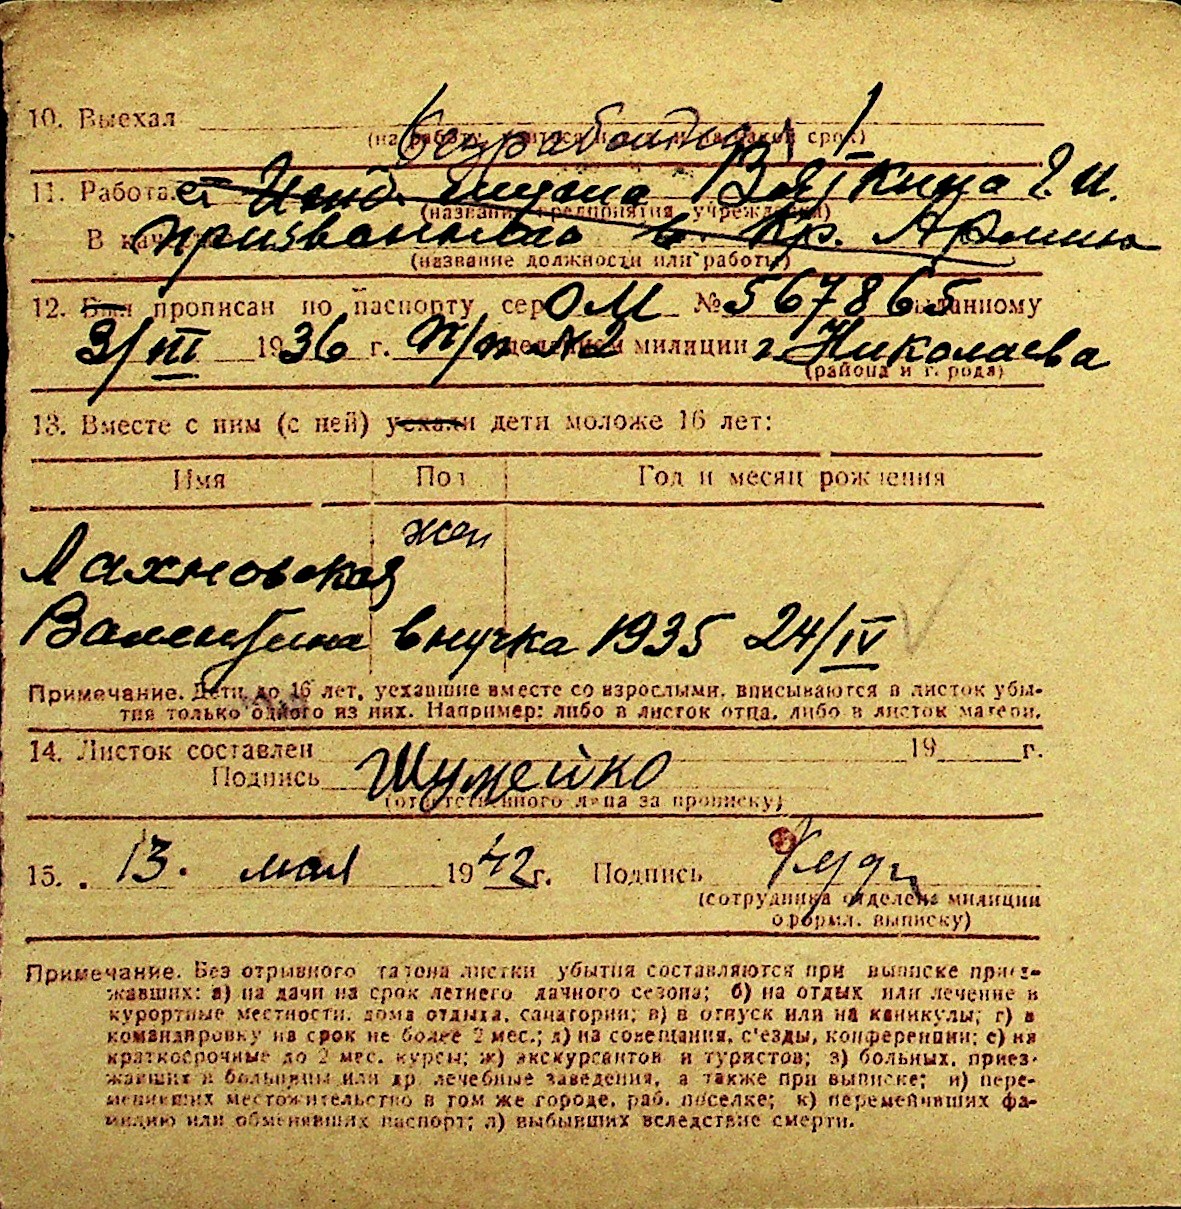 10. Выехал безработная
(на работу, срок)
11. Работа ст. Инд. Вяткина Г. И.
(название предприятия учреждения)
В качестве призванного в Кр. Армию
(название должности или работы)
12. Был прописан по паспорту сер ОМ № 567865 выданному
3/III 1936 г. п/п №2 отделением милиции г. Николаева
(района и города)
13. Вместе с ним (с ней) уехали дети моложе 16 лет:
Имя Пол Год и месяц рождения
жен
Лахновская
Валентина внучка 1935 24/IV
Примечание. Дети до 16 лет, уехавшие вместе со взрослыми, вписываются в листок убы-
тия только одного из них. Например: либо в листок отца, либо в листок матери.
14. Листок составлен 19 г.
Подпись Шумейко
(ответственного лица за прописку)
15. 13. мая 1942 г. Подпись
(сотрудника отделения милиции
оформл. выписку)
Примечание. Без отрывного талона листки убытия составляются при выписке приез-
жавших: а) на дачи на срок летнего дачного сезона; б) на отдых или лечение в
курортные местности, дома отдыха, санатории; в) в отпуск или на каникулы; г) в
командировку на срок не более 2 мес.; д) на совещания, с'езды, конференции; е) на
краткосрочные до 2 мес. курсы; ж) экскурсантов и туристов; з) больных, приез-
жавших в больницы или др. лечебные заведения, а также при выписке; и) пере-
менивших местожительство в том же городе, раб. поселке; к) переменивших фа-
милию или обменявших паспорт; л) выбывших вследствие смерти.